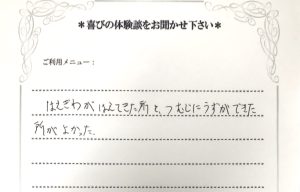 ＊喜びの体験談をお聞かせ下さい＊
ご利用メニュー：
はえぎわが はえてきた所と、つむじにうずができた
所がよかった。